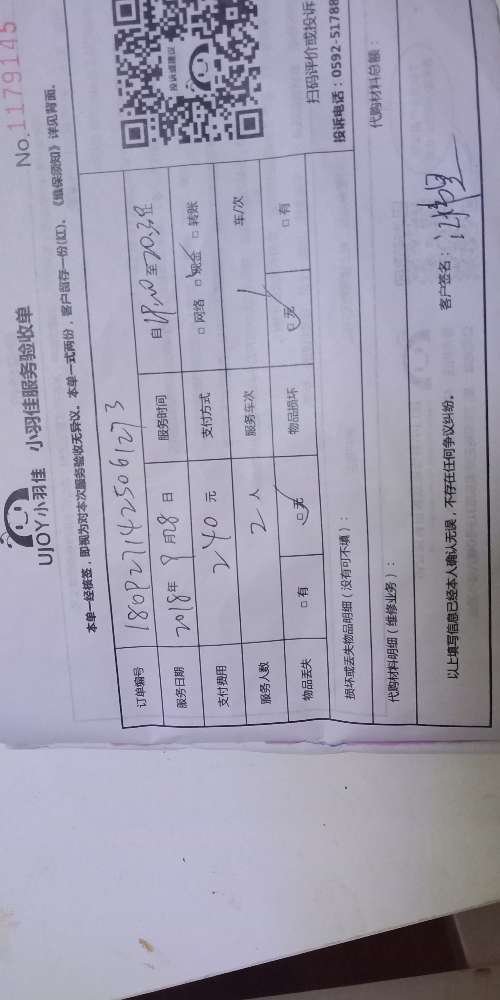 UJOY小羽佳 小羽佳服务验收单
No.1179145
本单一经核签，即视为对本次服务验收无异议。本单一式两份，客户留存一份(红)。《维保须知》详见背面。
订单编号
服务日期 2018年9月8日 服务时间 自 至
支付费用 240元 支付方式 □网络 □现金 □转账
服务人数 2人 服务车次 1 车/次
物品丢失 □有 □无 物品损坏 □无 □有
投诉或建议
扫码评价或投诉
投诉电话：0592-51788
损坏或丢失物品明细（没有可不填）：
代购材料明细（维修业务）： 代购材料总额：
以上填写信息已经本人确认无误，不存在任何争议纠纷。 客户签名：